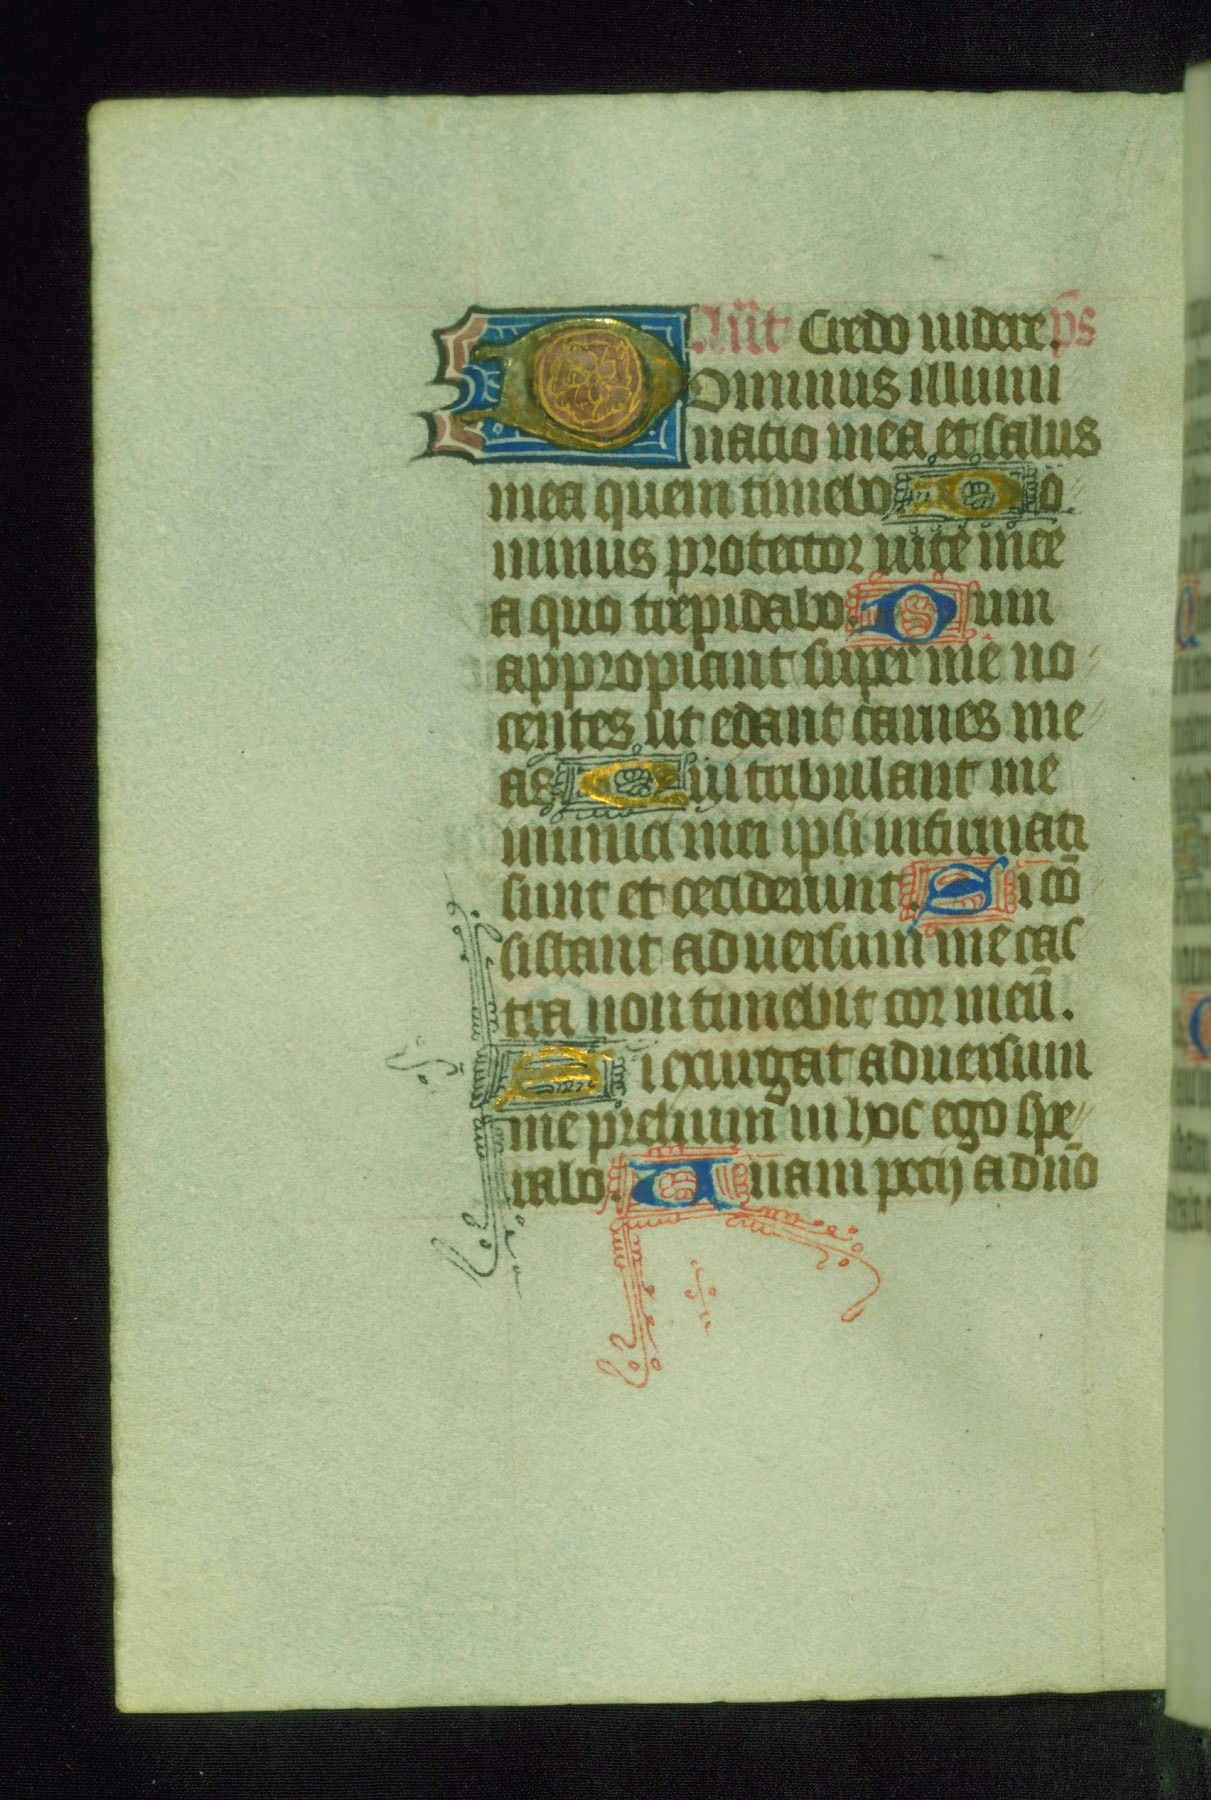 An̄t Credo uidere. p̄s
Dominus illumi
natio mea et salus
mea quem timebo Do
minus protector uite mee
a quo trepidabo. Dum
appropiant super me no
centes ut edant carnes me
as Qui tribulant me
inimici mei ipsi infirmati
sunt et ceciderunt. Si cō
sistant aduersum me cas
tra non timebit cor meū.
Si exurgat aduersum
me prelium in hoc ego spe
rabo. Unam pecij a dn̄o